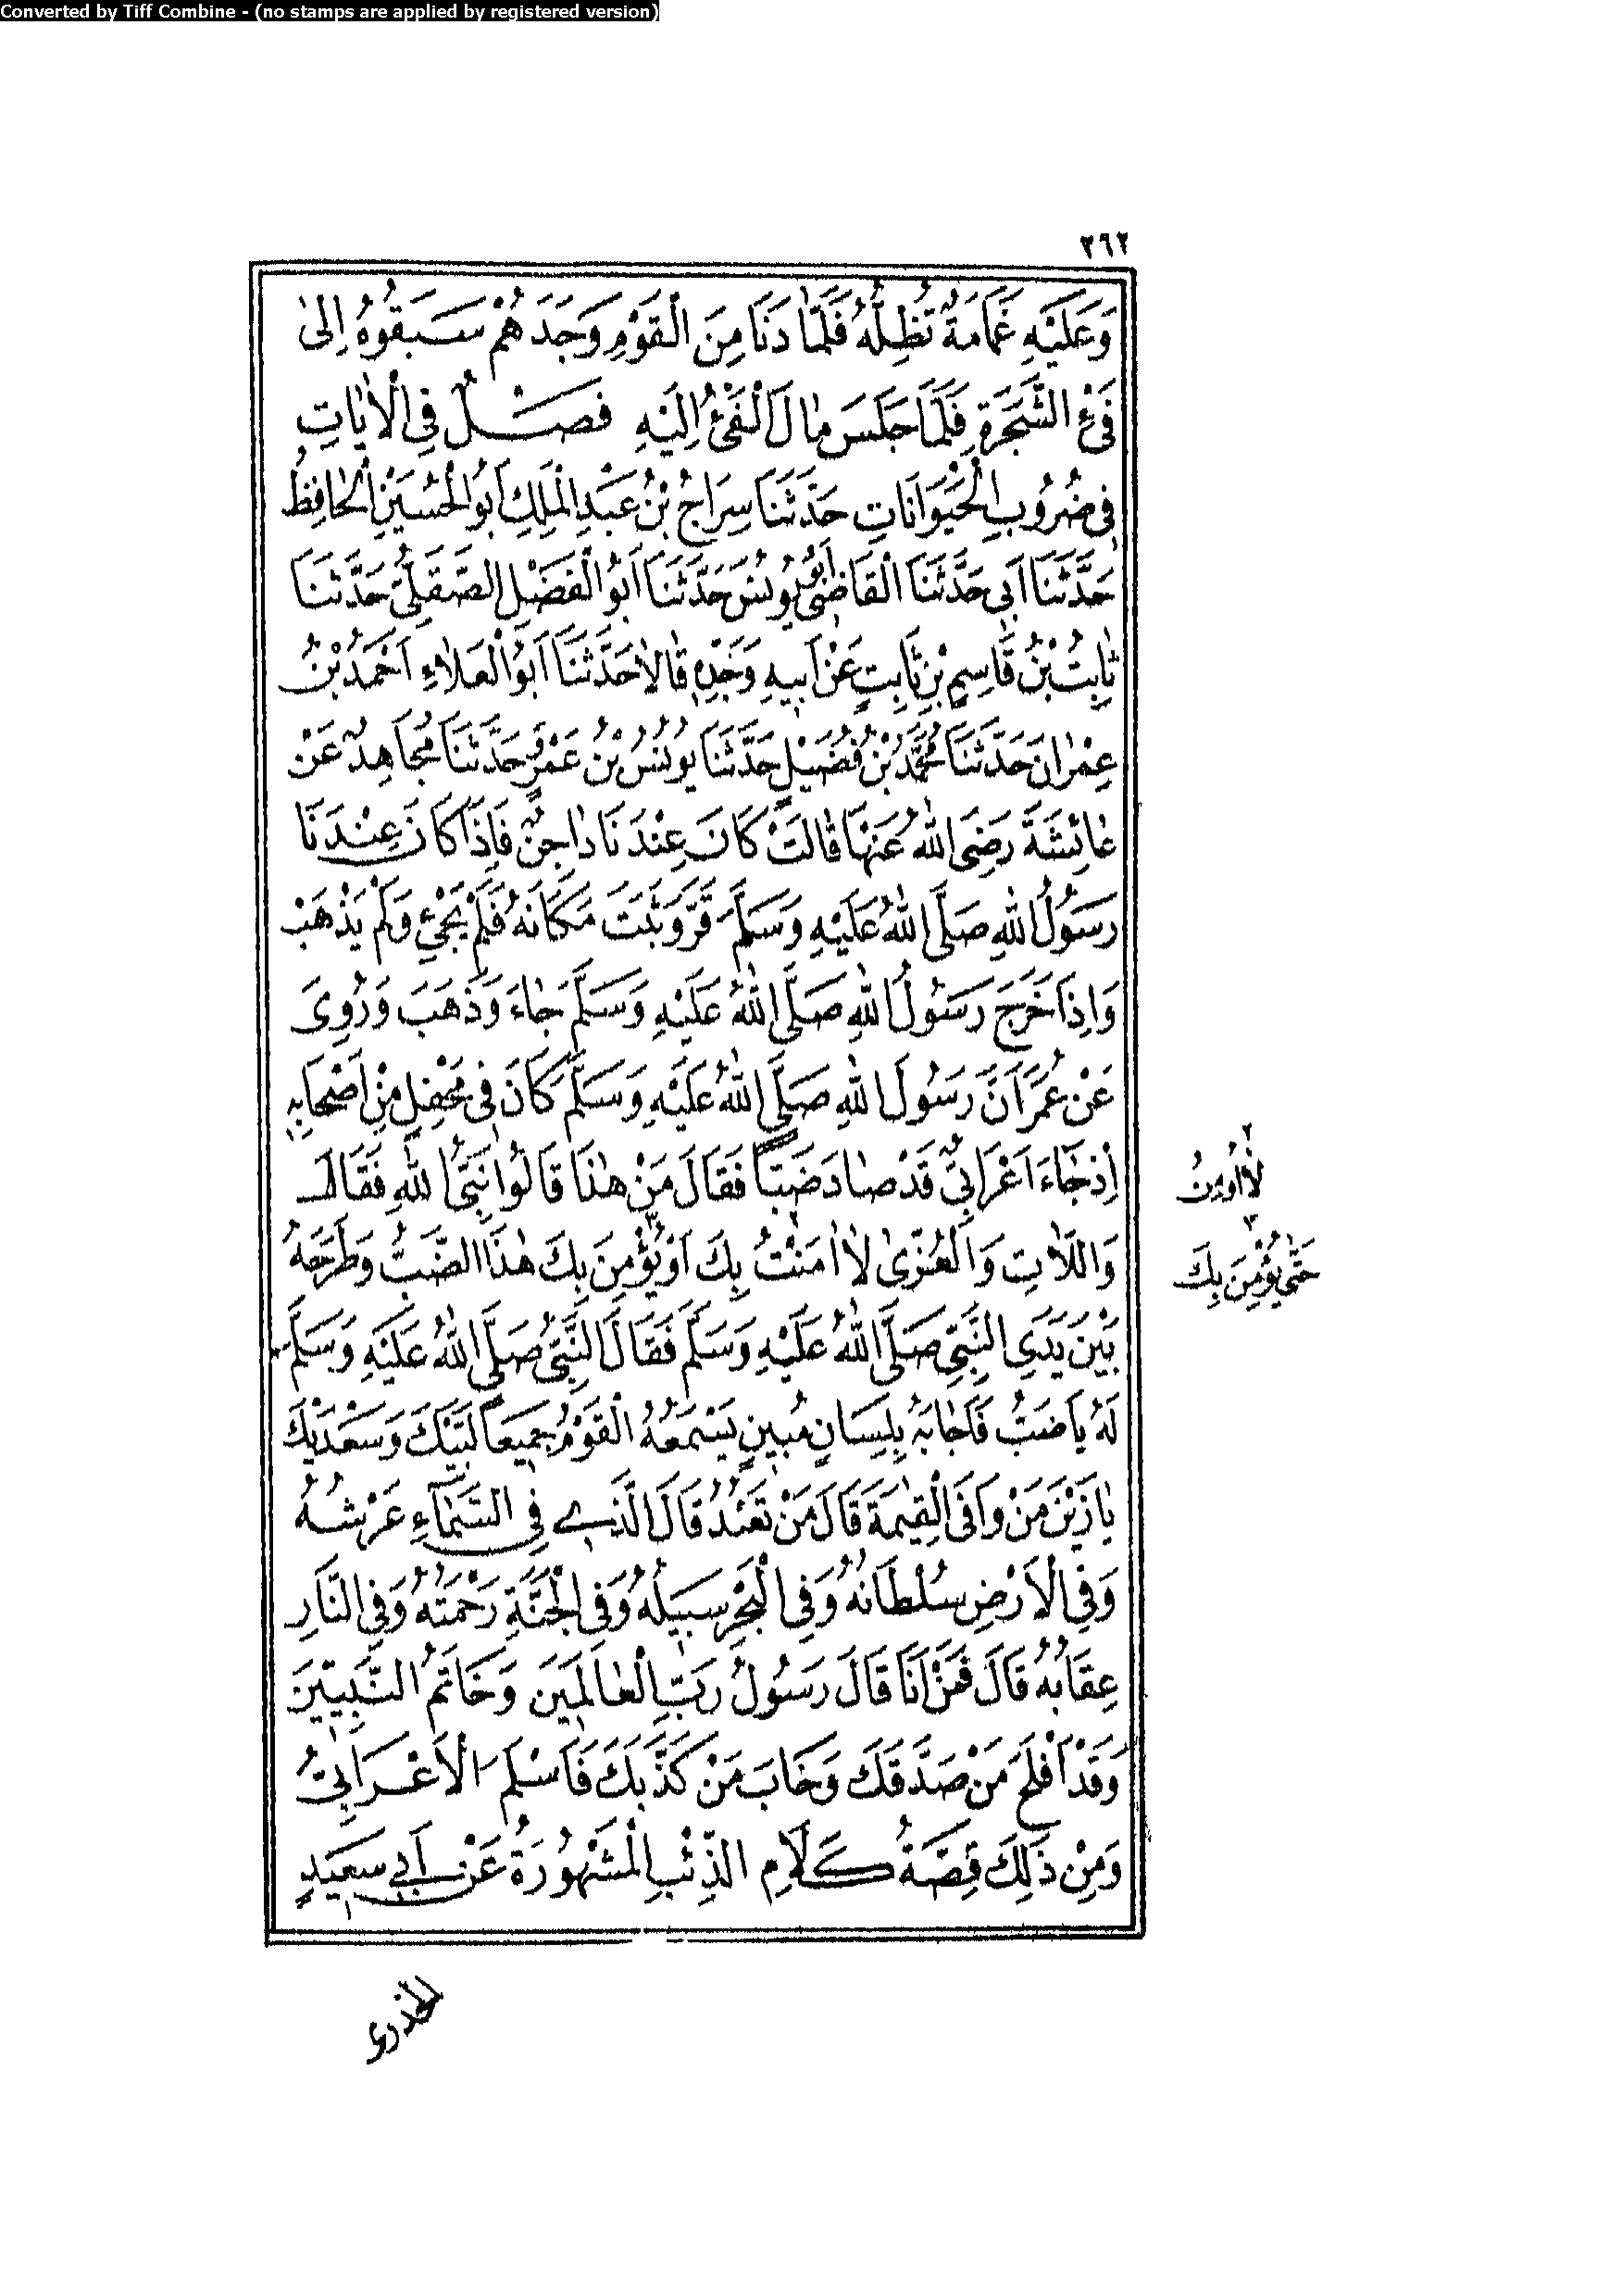 Converted by Tiff Combine - (no stamps are applied by registered version)
٢٦٢
وَعَلَيْهِ غَمَامَةٌ تُظِلُّهُ فَلَمَّا دَنَا مِنَ الْقَوْمِ وَجَدَهُمْ سَبَقُوهُ اِلىٰ
فَيْءِ الشَّجَرَةِ فَلَمَّا جَلَسَ مٰالَ الْفَيْءُ اِلَيْهِ فَصْلٌ فِى الْاٰيَاتِ
فِى ضُرُوبِ الْحَيَوَانَاتِ حَدَّثَنَا سِرَاجُ بْنُ عَبْدِ الْمَلِكِ اَبُو الْحُسَيْنِ الْحٰافِظُ
حَدَّثَنَا اَبِى حَدَّثَنَا الْقَاضِى اَبُو يُونُسَ حَدَّثَنَا اَبُو الْفَضْلِ الصَّقَلِّىُّ حَدَّثَنَا
ثٰابِتُ بْنُ قَاسِمِ بْنِ ثَابِتٍ عَنْ اَبِيهِ وَجَدِّهِ قٰالاٰ حَدَّثَنَا اَبُو الْعَلاٰءِ اَحْمَدُ بْنُ
عِمْرٰانَ حَدَّثَنَا مُحَمَّدُ بْنُ فُضَيْلٍ حَدَّثَنَا يُونُسُ بْنُ عَمْرٍو حَدَّثَنَا مُجَاهِدٌ عَنْ
عٰائِشَةَ رَضِىَ اللّٰهُ عَنْهَا قٰالَتْ كَانَ عِنْدَنَا دٰاجِنٌ فَاِذَا كَانَ عِنْدَنَا
رَسُولُ اللّٰهِ صَلَّى اللّٰهُ عَلَيْهِ وَسَلَّمَ قَرَّ وَثَبَتَ مَكَانَهُ فَلَمْ يَجِئْ وَلَمْ يَذْهَبْ
وَاِذَا خَرَجَ رَسُولُ اللّٰهِ صَلَّى اللّٰهُ عَلَيْهِ وَسَلَّمَ جٰاءَ وَذَهَبَ وَرُوِىَ
عَنْ عُمَرَ اَنَّ رَسُولَ اللّٰهِ صَلَّى اللّٰهُ عَلَيْهِ وَسَلَّمَ كَانَ فِى مَحْفِلٍ مِنْ اَصْحَابِهِ
اِذْ جٰاءَ اَعْرَابِىٌّ قَدْ صٰادَ ضَبًّا فَقَالَ مَنْ هٰذَا قَالُوا نَبِىُّ اللّٰهِ فَقَالَ
وَاللاَّتِ وَالْعُزّىٰ لاٰ اٰمَنْتُ بِكَ اَوْ يُؤْمِنَ بِكَ هٰذَا الضَّبُّ وَطَرَحَهُ
بَيْنَ يَدَىِ النَّبِىِّ صَلَّى اللّٰهُ عَلَيْهِ وَسَلَّمَ فَقَالَ النَّبِىُّ صَلَّى اللّٰهُ عَلَيْهِ وَسَلَّمَ
لَهُ يَا ضَبُّ فَاَجٰابَهُ بِلِسَانٍ مُبِينٍ يَسْمَعُهُ الْقَوْمُ جَمِيعًا لَبَّيْكَ وَسَعْدَيْكَ
يٰا زَيْنَ مَنْ وَافَى الْقِيٰمَةَ قَالَ مَنْ تَعْبُدُ قَالَ الَّذِى فِى السَّمٰاءِ عَرْشُهُ
وَفِى الْاَرْضِ سُلْطَانُهُ وَفِى الْبَحْرِ سَبِيلُهُ وَفِى الْجَنَّةِ رَحْمَتُهُ وَفِى النَّارِ
عِقَابُهُ قَالَ فَمَنْ اَنَا قَالَ رَسُولُ رَبِّ الْعٰالَمِينَ وَخَاتَمُ النَّبِيِّينَ
وَقَدْ اَفْلَحَ مَنْ صَدَّقَكَ وَخَابَ مَنْ كَذَّبَكَ فَاَسْلَمَ الْاَعْرَابِىُّ
وَمِنْ ذَلِكَ قِصَّةُ كَلَامِ الذِّئْبِ الْمَشْهُورَةُ عَنْ اَبِى سَعِيدٍ
٢
لاٰ اُومِنُ
٣
حَتّٰى يُؤْمِنَ بِكَ
الخدرى